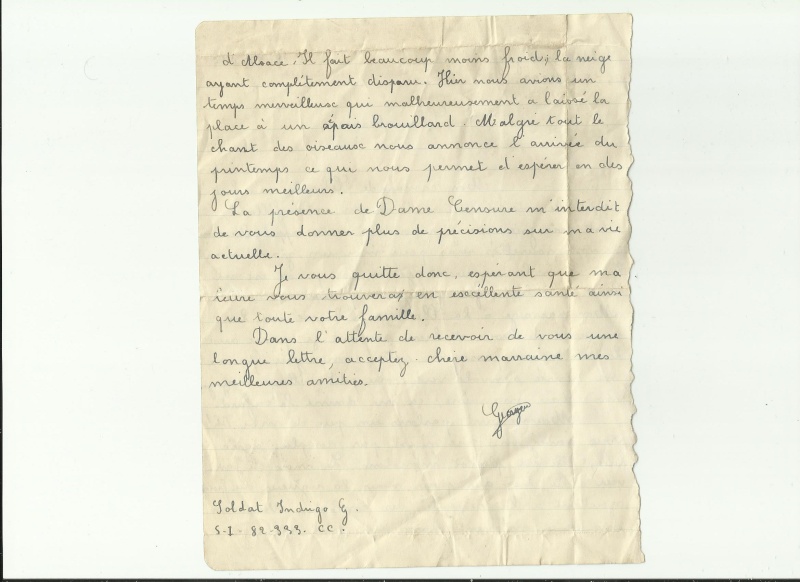 d'Alsace. Il fait beaucoup moins froid; la neige
ayant complétement disparu. Hier nous avions un
temps merveilleux qui malheureusement a laissé la
place à un épais brouillard. Malgré tout le
chant des oiseaux nous annonce l'arrivée du
printemps ce qui nous permet d'espérer en des
jours meilleurs.
La présence de Dame Censure m'interdit
de vous donner plus de précisions sur ma vie
actuelle.
Je vous quitte donc, espérant que ma
vous trouvera en excéllente santé ainsi
que toute votre famille.
Dans l'attente de recevoir de vous une
longue lettre, acceptez chère marraine mes
meilleures amitiés.
Georges
Soldat Indrigo G.
S-I- 82.933. CC.